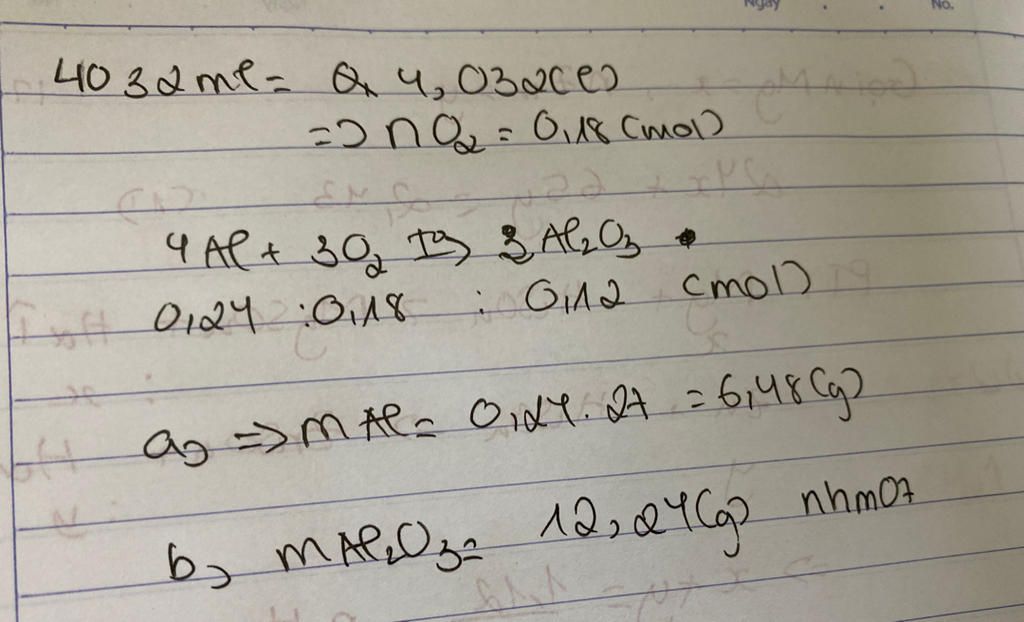 Ngày . . No.
4032 ml = 4,032 (l)
=> nO2 = 0,18 (mol)
4Al + 3O2 => Al2O3
0,24 : 0,18 : 0,12 (mol)
a, => mAl = 0,24 . 27 = 6,48 (g)
b, mAl2O3 = 12,24 (g)